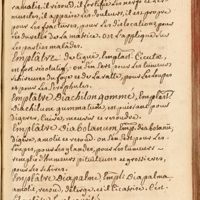 ramolit, il résout, il fortifie les nerfs et les
muscles, il appaise les douleurs, il est propre
pour les fractures, pour les dislocations, pour
les duretés de la matrice. on l'applique sur
les parties malades.
Emplâtre De Ciguë, Emplast. Cicutæ
on s'en sert pour les tumeurs
schirreuses du foye et de la ratte, pour les loupes
et pour les scrophules.
Emplâtre Diachilon gommé, Emplast.
diachilum gummatum, on s'en sert pour
digérer, cuire, meurir et résoudre.
Emplâtre Diabotanum, Empl. diabotani,
digère, amolit et résout. on s'en sert pour les
loupes, pour les glandes, pour les tumeurs
remplies d'humeurs pituiteuses et grossieres,
pour les schirres.
Emplâtre Diapalme, Empl. Diapalma,
amolit, résout, déterge, et il cicatrise. c'est